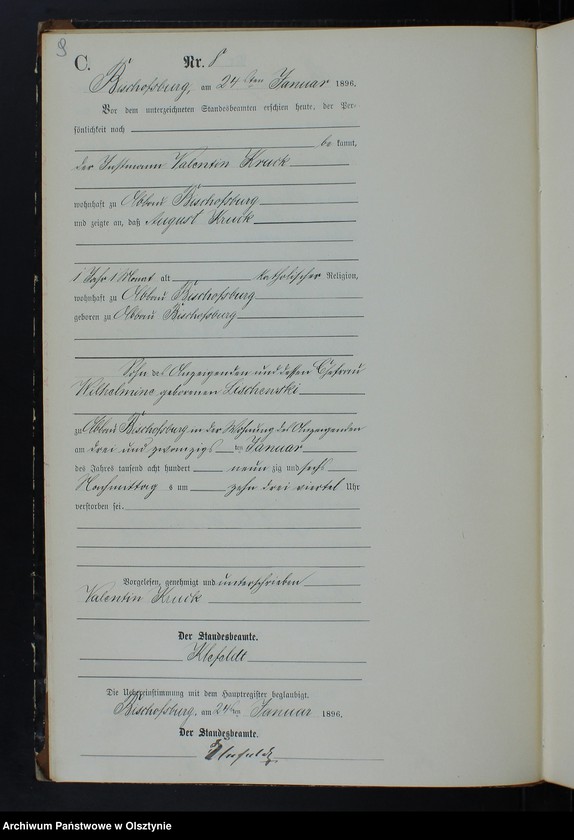 9
C.
Nr. 8
Bischofsburg, am 24ten Januar 1896.
Vor dem unterzeichneten Standesbeamten erschien heute, der Per-
sönlichkeit nach
be kannt,
der Instmann Valentin Kruck
wohnhaft zu Abbau Bischofsburg
und zeigte an, daß August Kruck
1 Jahr 1 Monat alt katholischer Religion,
wohnhaft zu Abbau Bischofsburg
geboren zu Abbau Bischofsburg
Sohn des Anzeigenden und dessen Ehefrau
Wilhelmine geborenen
zu Abbau Bischofsburg in der Wohnung des Anzeigenden
am drei und zwanzigsten Januar
des Jahres tausend acht hundert neun zig und sechs
Nachmittag s um zehn drei viertel Uhr
verstorben sei.
Vorgelesen, genehmigt und unterschrieben
Valentin Kruck
Der Standesbeamte.
Klefeldt
Die Uebereinstimmung mit dem Hauptregister beglaubigt.
Bischofsburg, am 24ten Januar 1896.
Der Standesbeamte.
Klefeldt
Archiwum Państwowe w Olsztynie